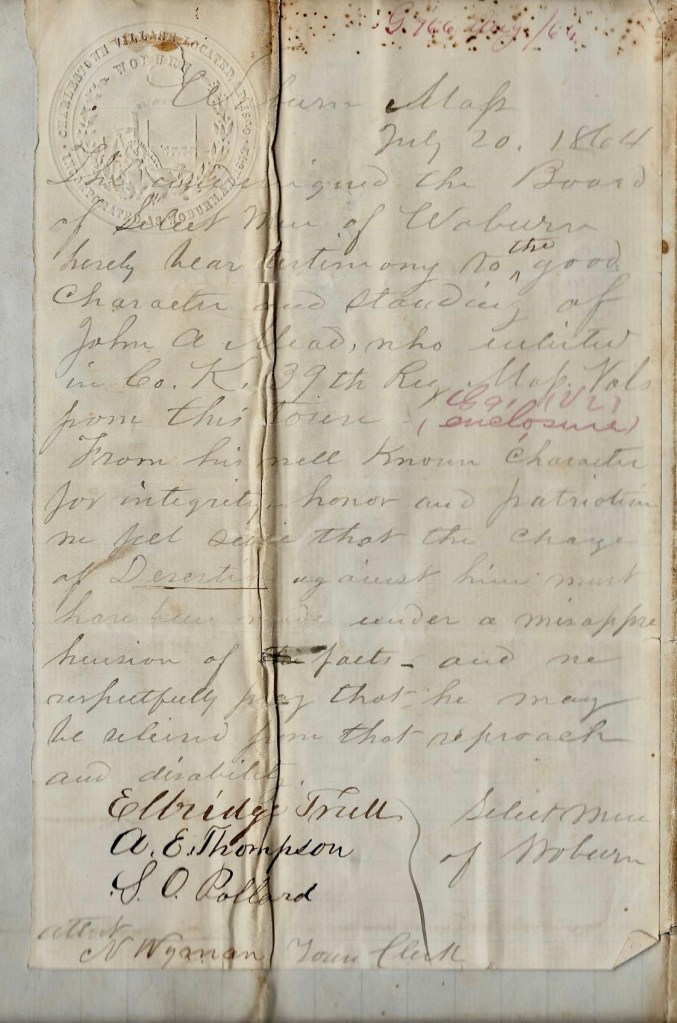 CHARLESTOWN VILLAGE LOCATED
INCORPORATED AS WOBURN
WOBURN
Woburn Mass
July 20. 1864
The undersigned the Board
of Select Men of Woburn
herely bear testimony to the good
Character and standing of
John A Mead, who enlisted
in Co. K. 39th Reg Mass. Vols
from this town
(enclosure)
From his well Known Character
for integrity honor and patriotism
we feel sure that the charge
of Desertion against him must
have been made under a misappre
hension of facts - and we
respectfully pray that he may
be relieved from that reproach
and disability.
Elbridge Trull
A. E. Thompson
S. O. Pollard
Select Men
of Woburn
attest
N Wyman Town Clerk